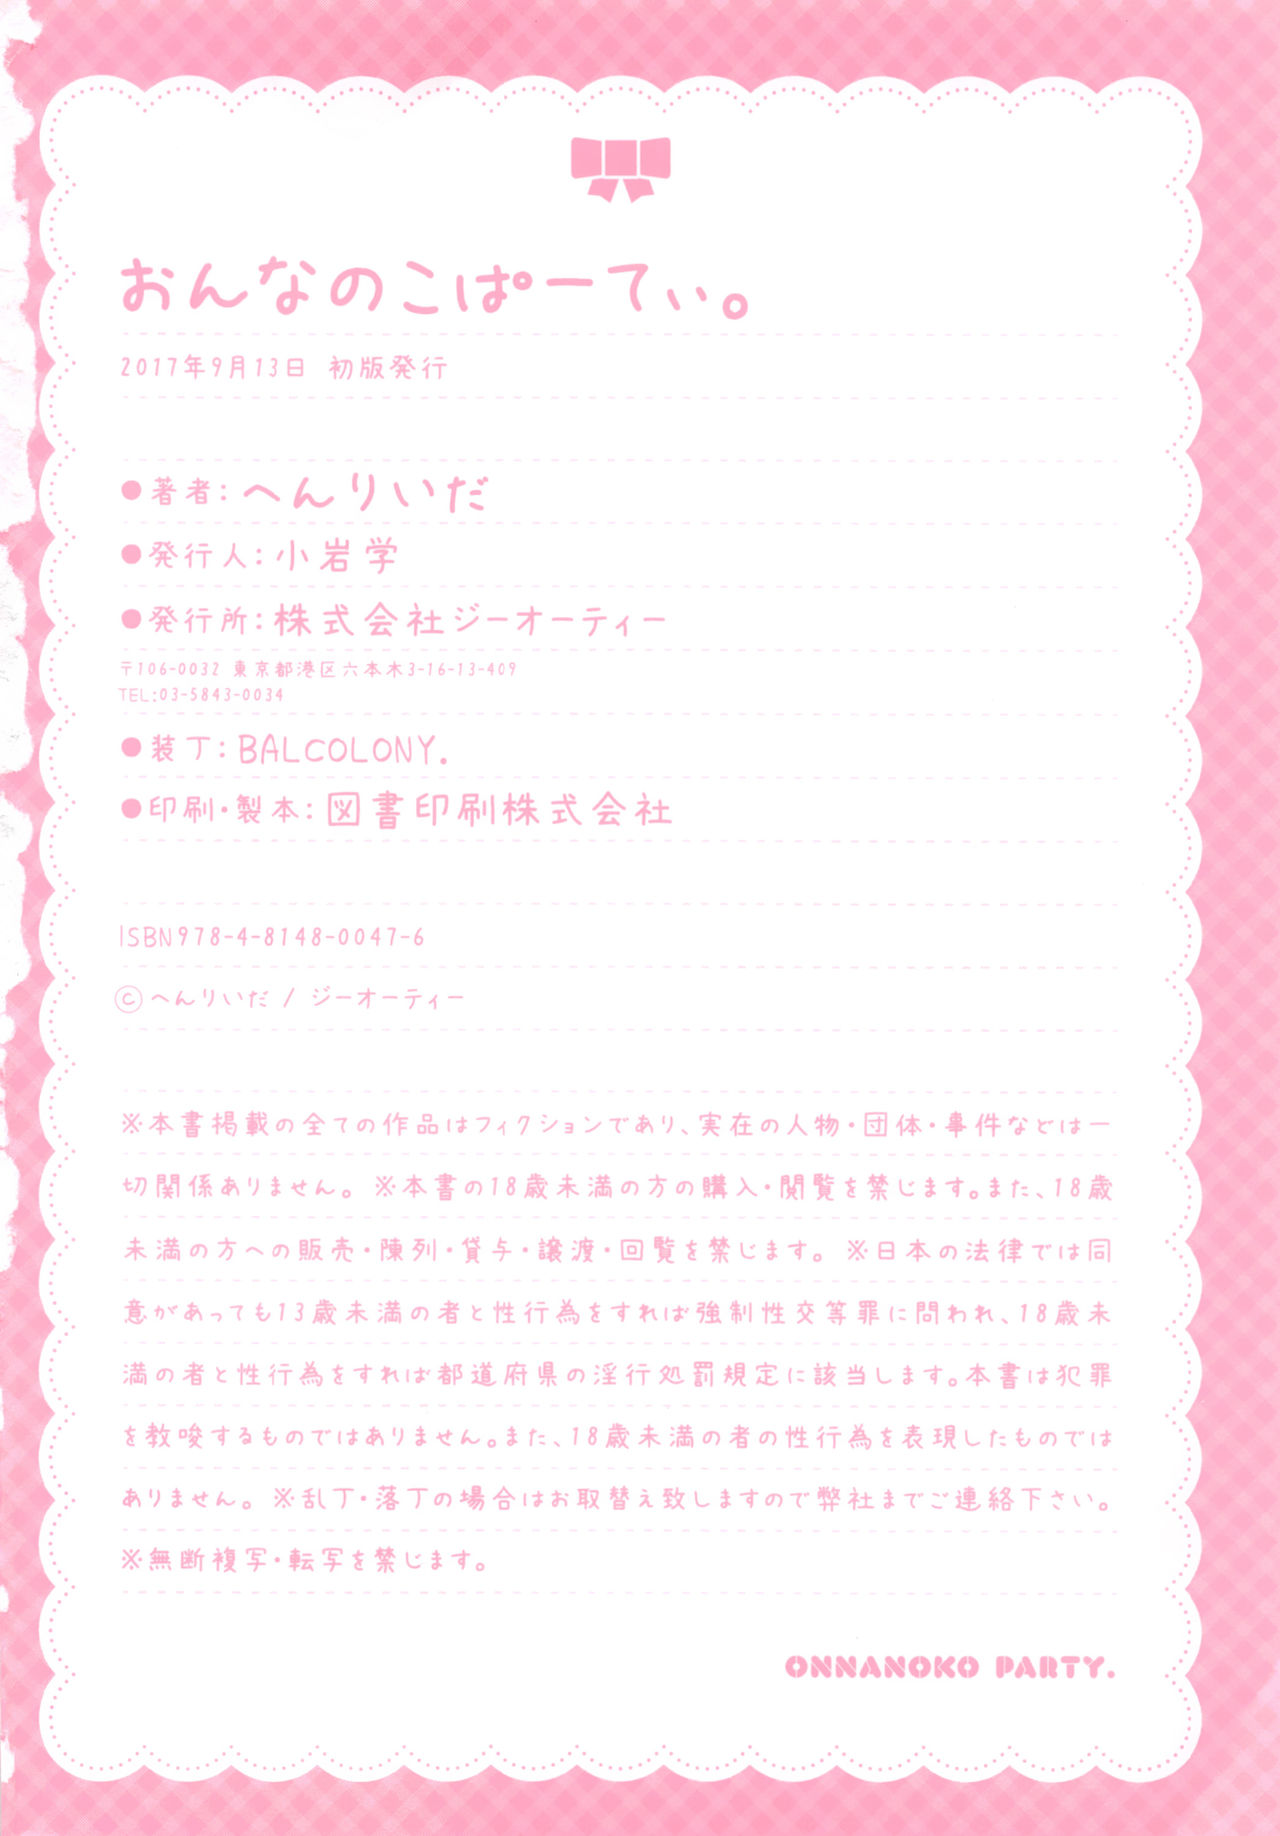 おんなのこぱーてぃ。
2017年9月13日 初版発行
●著者：へんりいだ
●発行人：小岩学
●発行所：株式会社ジーオーティー
〒106-0032 東京都港区六本木3-16-13-409
TEL:03-5843-0034
●装丁：BALCOLONY.
●印刷・製本：図書印刷株式会社
ISBN978-4-8148-0047-6
©へんりいだ / ジーオーティー
※本書掲載の全ての作品はフィクションであり、実在の人物・団体・事件などは一
切関係ありません。 ※本書の18歳未満の方の購入・閲覧を禁じます。また、18歳
未満の方への販売・陳列・貸与・譲渡・回覧を禁じます。 ※日本の法律では同
意があっても13歳未満の者と性行為をすれば強制性交等罪に問われ、18歳未
満の者と性行為をすれば都道府県の淫行処罰規定に該当します。本書は犯罪
を教唆するものではありません。また、18歳未満の者の性行為を表現したものでは
ありません。 ※乱丁・落丁の場合はお取替え致しますので弊社までご連絡下さい。
※無断複写・転写を禁じます。
ONNANOKO PARTY.